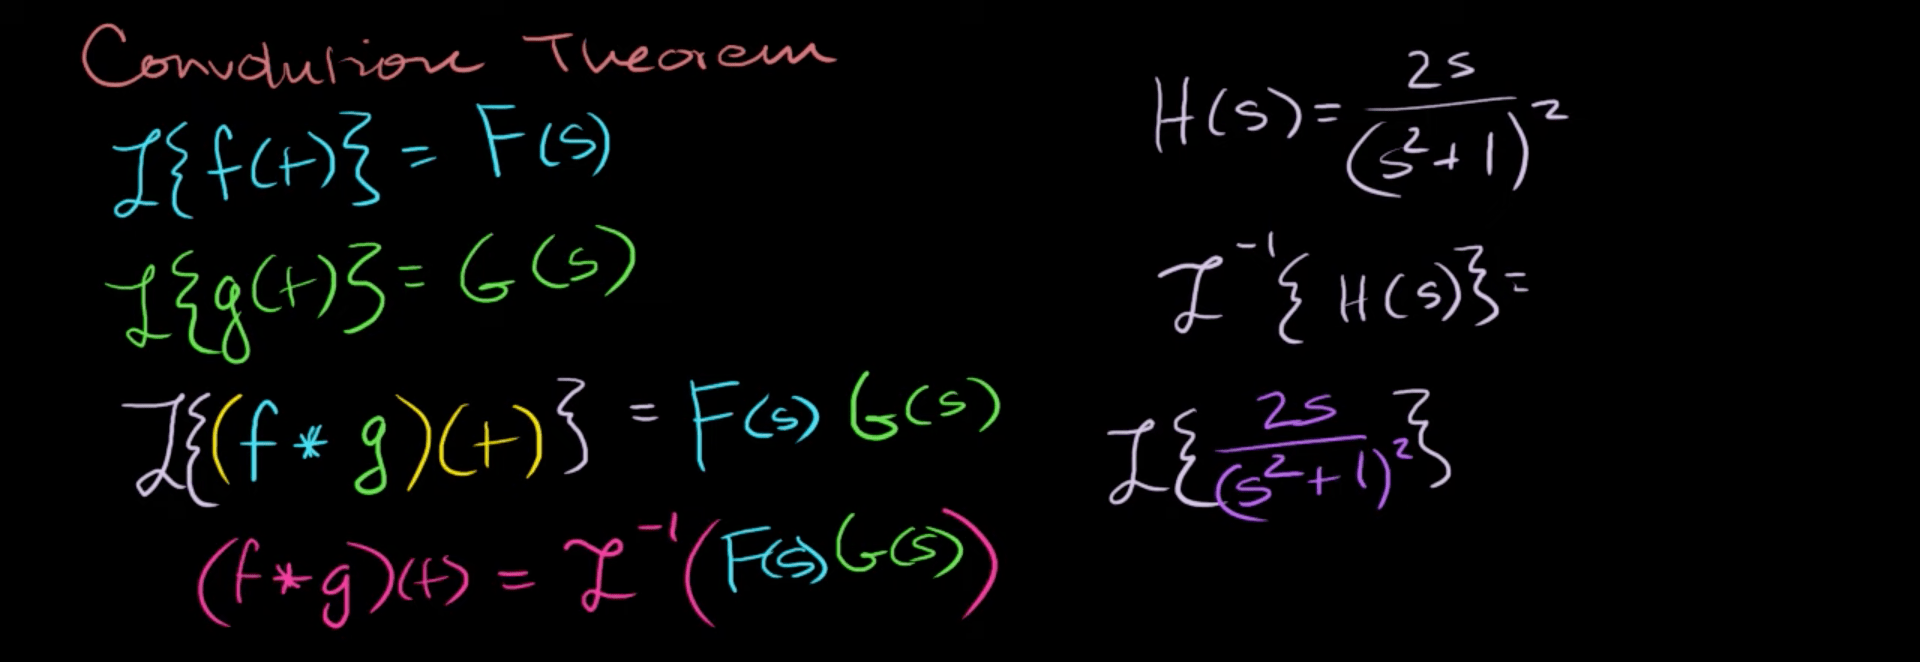 Convolution Theorem
ℒ{f(t)} = F(s)
ℒ{g(t)} = G(s)
ℒ{(f * g)(t)} = F(s) G(s)
(f * g)(t) = ℒ⁻¹(F(s) G(s))
H(s) = 2s / (s² + 1)²
ℒ⁻¹{H(s)} =
ℒ{2s / (s² + 1)²}